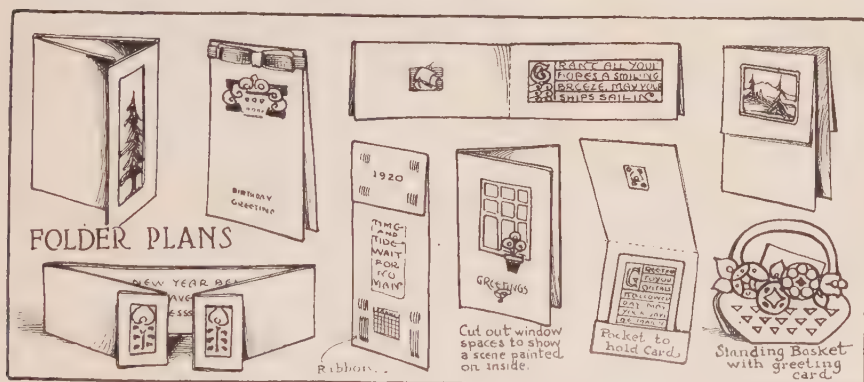 BIRTHDAY
GREETING
GRANT ALL YOUR
HOPES A SMILING
BREEZE. MAY YOUR
SHIPS SAIL IN.
FOLDER PLANS
1920
TIME
AND
TIDE
WAIT
FOR
NO
MAN
GREETINGS
NEW YEAR
Ribbon
Cut out window
spaces to show
a scene painted
on inside.
Pocket to
hold Card
Standing Basket
with greeting
card